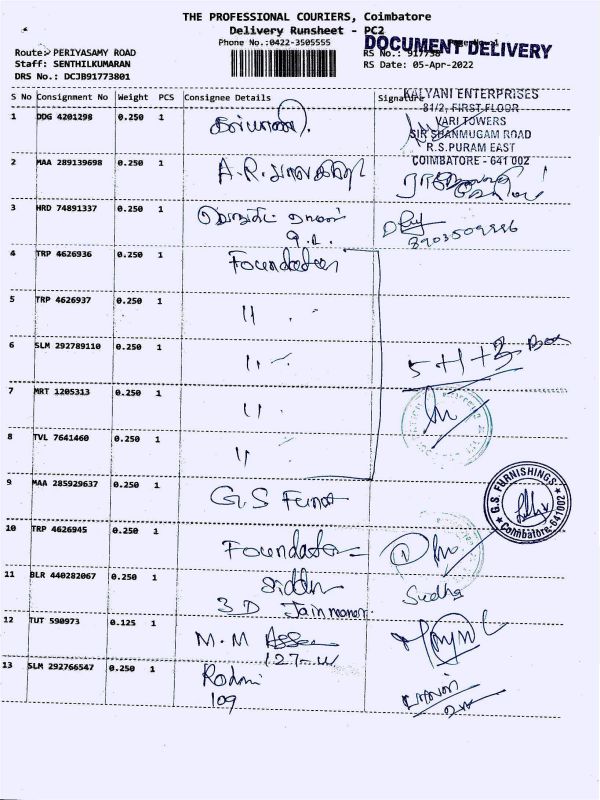 THE PROFESSIONAL COURIERS, Coimbatore
Delivery Runsheet - PC2
Phone No.:0422-3505555
DOCUMENT DELIVERY
Route: PERIYASAMY ROAD
Staff: SENTHILKUMARAN
RS Date: 05-Apr-2022
DRS No.: DCJB91773801
S No Consignment No Weight PCS Consignee Details Signature
KALYANI ENTERPRISES
81/2, FIRST FLOOR
VARI TOWERS
SIR SHANMUGAM ROAD
R.S.PURAM EAST
COIMBATORE - 641 002
1 DDG 4201298 0.250 1
2 MAA 289139698 0.250 1 A.R.
3 HRD 74891337 0.250 1
4 TRP 4626936 0.250 1 Foundation
5 TRP 4626937 0.250 1 11
6 SLM 292789110 0.250 1 11 5+1+3 Box
7 MRT 1205313 0.250 1 11
8 TVL 7641460 0.250 1 11
9 MAA 285929637 0.250 1 G.S Furnt
G.S. FURNISHINGS
Coimbatore-641002
10 TRP 4626945 0.250 1 Foundation
11 BLR 440282067 0.250 1 Siddhu Sudha
3 D Jain
12 TUT 590973 0.125 1 M.M
127-W
13 SLM 292766547 0.250 1
109